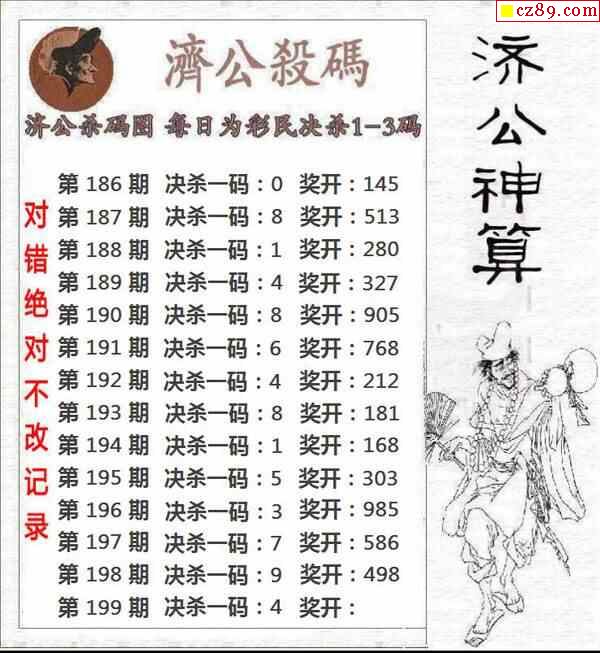 cz89.com
濟公殺碼
济公杀码图 每日为彩民决杀1-3码
济公神算
对错绝对不改记录
第 186 期 决杀一码：0 奖开：145
第 187 期 决杀一码：8 奖开：513
第 188 期 决杀一码：1 奖开：280
第 189 期 决杀一码：4 奖开：327
第 190 期 决杀一码：8 奖开：905
第 191 期 决杀一码：6 奖开：768
第 192 期 决杀一码：4 奖开：212
第 193 期 决杀一码：8 奖开：181
第 194 期 决杀一码：1 奖开：168
第 195 期 决杀一码：5 奖开：303
第 196 期 决杀一码：3 奖开：985
第 197 期 决杀一码：7 奖开：586
第 198 期 决杀一码：9 奖开：498
第 199 期 决杀一码：4 奖开：